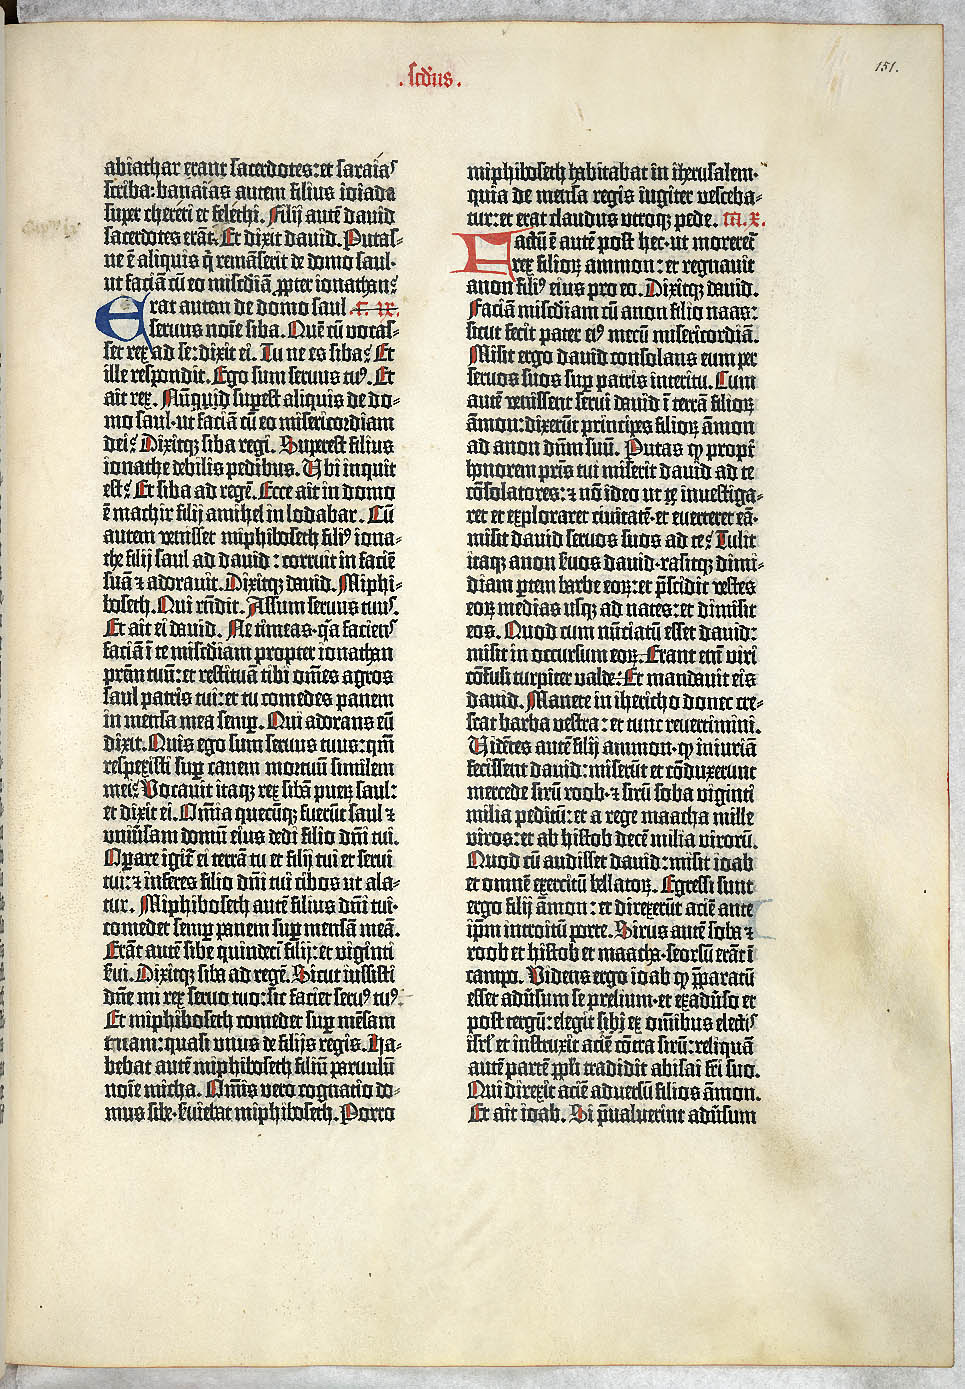 .scd'us.
151.
abiathar erant sacerdotes: et saraias
scriba: banaias autem filius ioiada
super cherethi et felethi. Filij autē dauid
sacerdotes erāt. Et dixit dauid. Putas-
ne ē aliquis q̄ remāserit de domo saul·
ut faciā cū eo misc̄diā ꝓpter ionathan?
Erat autem de domo saul .c. ix.
seruus noīe siba. Quē cū vocas-
set rex ad se: dixit ei. Tu ne es siba? Et
ille respondit. Ego sum seruus tuꝰ. Et
ait rex. Nūquid supest aliquis de do-
mo saul· ut faciā cū eo misericordiam
dei? Dixitqꝫ siba regi. Superest filius
ionathe debilis pedibus. Ubi inquit
est? Et siba ad regē. Ecce ait in domo
ē machir filij amihel in lodabar. Cū
autem venisset miphiboseth filiꝰ iona-
the filij saul ad dauid: corruit in faciē
suā ⁊ adorauit. Dixitqꝫ dauid. Miphi-
boseth. Qui rn̄dit. Assum seruus tuus.
Et ait ei dauid. Ne timeas· q̄a faciens
faciā ī te misc̄diam propter ionathan
prēm tuū: et restituā tibi om̄es agros
saul patris tui: et tu comedes panem
in mensa mea semꝑ. Qui adorans eū
dixit. Quis ego sum seruus tuus: qm̄
respexisti suꝑ canem mortuū similem
mei? Vocauit itaqꝫ rex sibā pueꝝ saul:
et dixit ei. Om̄ia quecūqꝫ fuerūt saul ⁊
uniūsam domū eius dedi filio dn̄i tui.
Operare igit̄ ei terrā tu et filij tui et serui
tui: ⁊ inferes filio dn̄i tui cibos ut ala-
tur. Miphiboseth autē filius dn̄i tui·
comedet semꝑ panem suꝑ mensā meā.
Erāt autē sibe quindeci filij: et viginti
s̄ui. Dixitqꝫ siba ad regē. Sicut iussisti
dn̄e mi rex seruo tuo: sic faciet seruꝰ tuꝰ.
Et miphiboseth comedet suꝑ mēsam
tuam: quasi vnus de filijs regis. Ha-
bebat autē miphiboseth filiū paruulū
noīe micha. Om̄is vero cognatio do-
mus sibe· s̄uiebat miphiboseth. Porro
miphiboseth habitabat in iherusalem·
quia de mensa regis iugiter vesceba-
tur: et erat claudus utroqꝫ pede. ca. x.
Factū ē autē post hec· ut moreret̄
rex filioꝝ ammon: et regnauit
anon filiꝰ eius pro eo. Dixitqꝫ dauid.
Faciā misc̄diam cū anon filio naas:
sicut fecit pater eiꝰ mecū misericordiā.
Misit ergo dauid consolans eum per
seruos suos suꝑ patris interitu. Cum
autē venissent serui dauid ī terrā filioꝝ
āmon: dixerūt principes filioꝝ āmon
ad anon dn̄m suū. Putas ꝙ propt̄
honorem pr̄is tui miserit dauid ad te
cōsolatores: ⁊ nō ideo ut īvestiga-
ret et exploraret ciuitatē· et euerteret eā·
misit dauid seruos suos ad te? Tulit
itaqꝫ anon s̄uos dauid· rasitqꝫ dimi-
diam ꝑtem barbe eoꝝ: et p̄scidit vestes
eoꝝ medias usqꝫ ad nates: et dimisit
eos. Quod cum nūciatū esset dauid:
misit in occursum eoꝝ. Erant em̄ viri
cōfusi turpiter valde: Et mandauit eis
dauid. Manete in ihericho donec cre-
scat barba vestra: et tunc reuertimini.
Videntes autē filij ammon· ꝙ iniuriā
fecissent dauid: miserūt et cōduxerunt
mercede sirū roob· ⁊ sirū soba viginti
milia peditū: et a rege maacha mille
viros: et ab histob decē milia virorū.
Quod cū audisset dauid: misit ioab
et omnē exercitū bellatoꝝ. Egressi sunt
ergo filij āmon: et direxerūt aciē ante
ip̄m introitū porte. Sirus autē soba ⁊
roob et histob et maacha· seorsū erāt ī
campo. Videns ergo ioab ꝙ p̄paratū
esset adūsum se prelium· et exadūso et
post tergū: elegit sibi ex om̄ibus electis
isrl̄ et instruxit aciē cōtra sirū: reliquā
autē partē ppl̄i tradidit abisai fr̄i suo.
Qui direxit aciē aduersū filios āmon.
Et ait ioab. Si p̄ualuerint adūsum